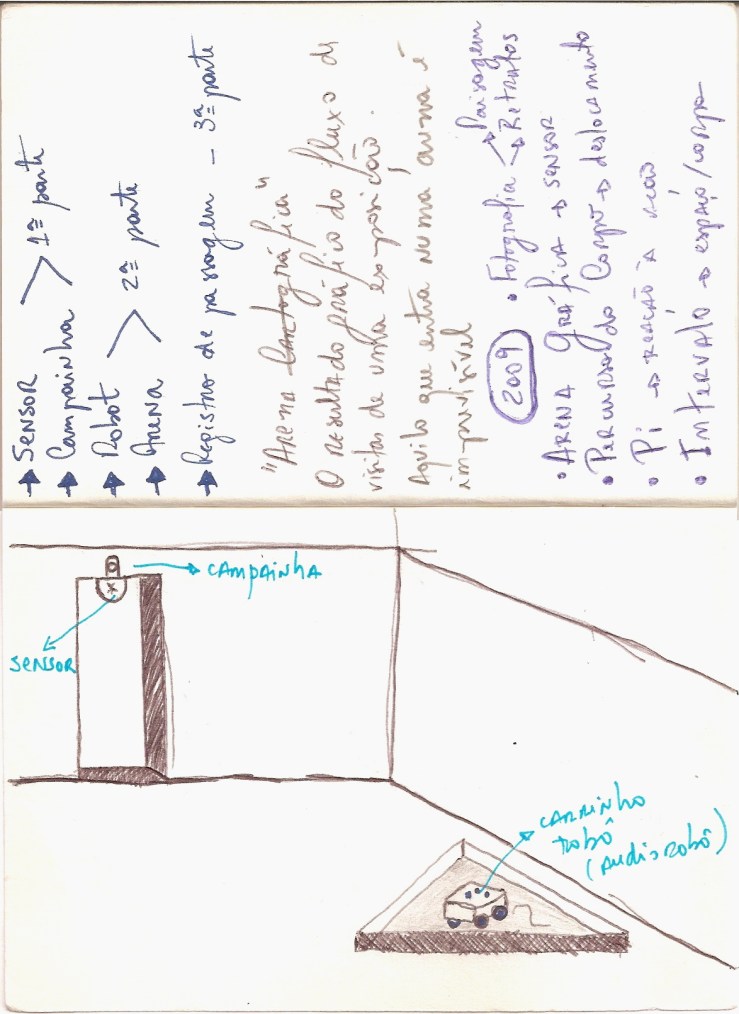 → SENSOR
→ Campainha > 1ª parte
→ Robot
→ Arena > 2ª parte
→ Registro de passagem – 3ª parte
"Arena Cartográfica"
O resultado gráfico do fluxo de
visitas de uma exposição.
Aquilo que entra numa arena é
imprevisível
2009
• Fotografia → Paisagem
→ Retratos
• ARENA GRÁFICA → SENSOR
• Percurso do Corpo → deslocamento
• Pi → REAÇÃO À AÇÃO
• INTERVALO → ESPAÇO/corpo
CAMPAINHA
SENSOR
CARRINHO
ROBÔ
(AUDIOROBÔ)